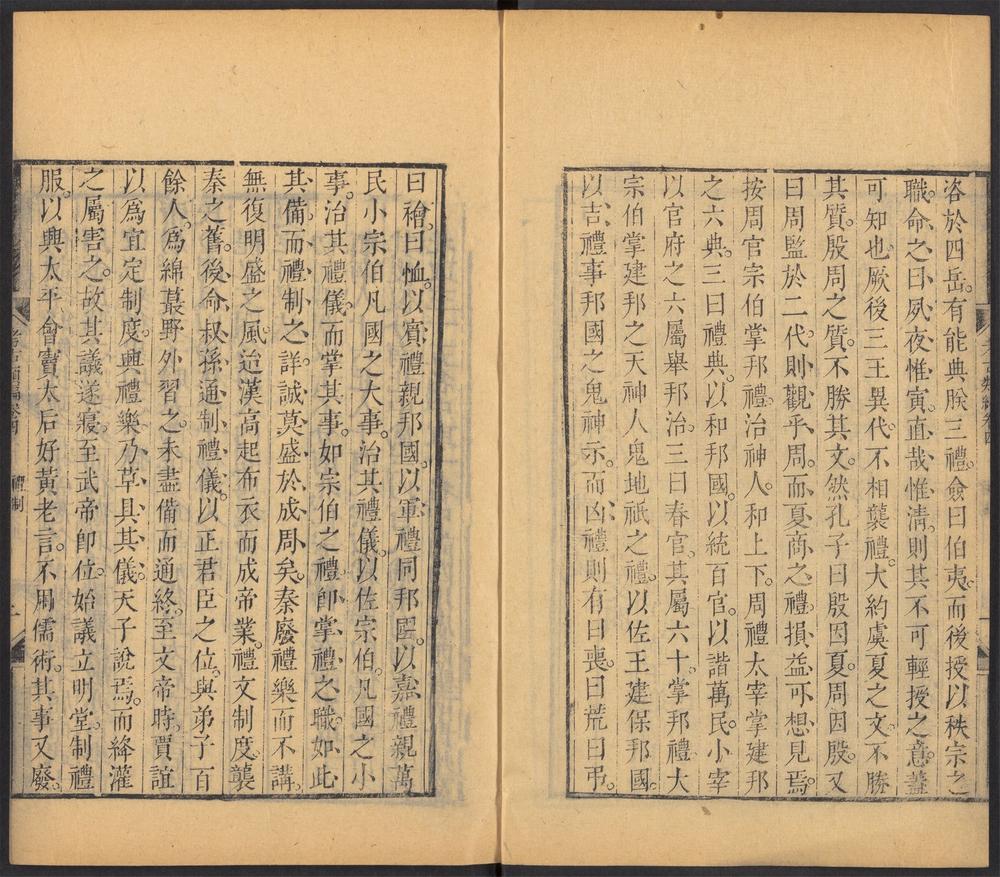 咨於四岳。有能典朕三禮。僉曰伯夷。而後授以秩宗之
職。命之曰夙夜惟寅直哉惟清。則其不可輕授之意。蓋
可知也。厥後三王異代。不相襲禮。大約虞夏之文。不勝
其質。殷周之質。不勝其文。然孔子曰殷因夏。周因殷。又
曰周監於二代。則觀乎周。而夏商之禮。損益可想見焉。
按周官宗伯掌邦禮。治神人。和上下。周禮太宰掌建邦
之六典。三曰禮典。以和邦國。以統百官。以諧萬民。小宰
以官府之六屬舉邦治。三曰春官。其屬六十。掌邦禮。大
宗伯掌建邦之天神人鬼地祇之禮。以佐王建保邦國。
以吉禮事邦國之鬼神示。而凶禮則有曰喪。曰荒曰弔。
曰禬。曰恤。以賓禮親邦國。以軍禮同邦國。以嘉禮親萬
民。小宗伯凡國之大事。治其禮儀。以佐宗伯。凡國之小
事。治其禮儀。而掌其事。如宗伯之禮。卽掌禮之職。如此
其備。而禮制之詳。誠莫盛於成周矣。秦廢禮樂而不講。
無復明盛之風。迨漢高起布衣而成帝業。禮文制度。襲
秦之舊。後命叔孫通制禮儀。以正君臣之位。與弟子百
餘人。爲綿蕞野外習之。未盡備而通終。至文帝時。賈誼
以爲宜定制度。興禮樂。乃草具其儀。天子說焉。而絳灌
之屬害之。故其議遂寢。至武帝卽位。始議立明堂。制禮
服。以興太平。會竇太后好黃老言。不用儒術。其事又廢。
禮制